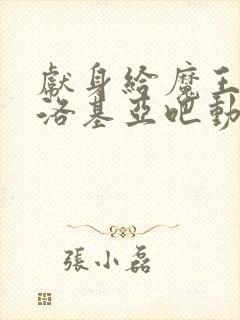 獻身給魔王
洛基亞吧動
張小磊